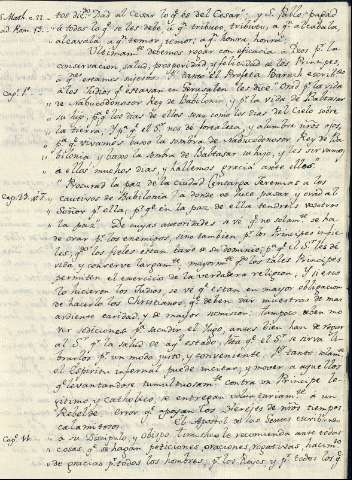 S. Math. c. 22
ad Rom. 13.
tos dic.: Dad al Cesar lo q.e es del Cesar; y S. Pablo: pagad
á todos lo q.e se les debe á q.n tributo, tributo, á q.n alcabala
alcavala, á q.n temor, temor, á q.n honra, honra.
Ultimam.te debemos rogar con eficacia á Dios p.r la
conservacion, salud, prosperidad, y felicidad de los Principes,
á q.nes estamos sujetos. El Santo Profeta Baruch escribe
Cap. 1.o
á los Judios q.e estavan en Jerusalen les dice: Orad p.r la vida
de Nabucodonosor Rey de Babilonia, y p.r la vida de Baltasar
su hijo, p.a q.e los dias de ellos sean como los dias del Cielo sobre
la tierra, y p.a q.e el S.or nos dé fortaleza, y alumbre n.ros ojos,
p.a q.e vivamos baxo la sombra de Nabucodonosor Rey de Ba-
bilonia, y baxo la sombra de Baltasar su hijo, y les sirvamos
á ellos muchos dias, y hallemos gracia ante ellos.
Cap. 29. v. 7.
Procurad la paz de la ciudad (encarga Jeremias á los
cautivos de Babilonia) á donde os hice pasar, y orad al
Señor p.r ella, p.r q.e en la paz de ella tendreis vosotros
la paz. De cuyas autoridades se ve q.e no solam.te se ha
de orar p.r los enemigos, sino tambien p.r los Principes infie-
les, q.e los fieles estan baxo de su dominio, p.a q.e el S.or les dé
vida y conserve largam.te mayorm.te q.do los tales Principes
permiten el exercicio de la verdadera religion. Y si esto
lo hicieron los Judios se ve q.e estan en mayor obligacion
de hacerlo los Christianos, q.e deben dar muestras de mas
ardiente caridad, y de mayor sumision. Tampoco deben mo-
ver sediciones p.a sacudir el yugo, antes bien han de rogar
al S.or q.e la saludo se
brarlos p.r un modo justo, y conveniente. P.r tanto solam.te
el Espiritu infernal puede incitar, y mover á aquellos
q.e levantandose tumultuosam.te contra su Principe le-
gitimo y catholico, se entregan voluntariam.te á un
Rebelde. Error q.e apoyan los Hereges de n.ros tiempos
calamitosos.
Cap. 11.
El Apostol á las Gentes escribiendo
á su Discipulo, y obispo Timotheo le recomienda ante todas
cosas, q.e se hagan peticiones, oraciones, rogativas, hacim.to
de gracias p.r todos los hombres, p.r los Reyes, y p.r todos los q.e